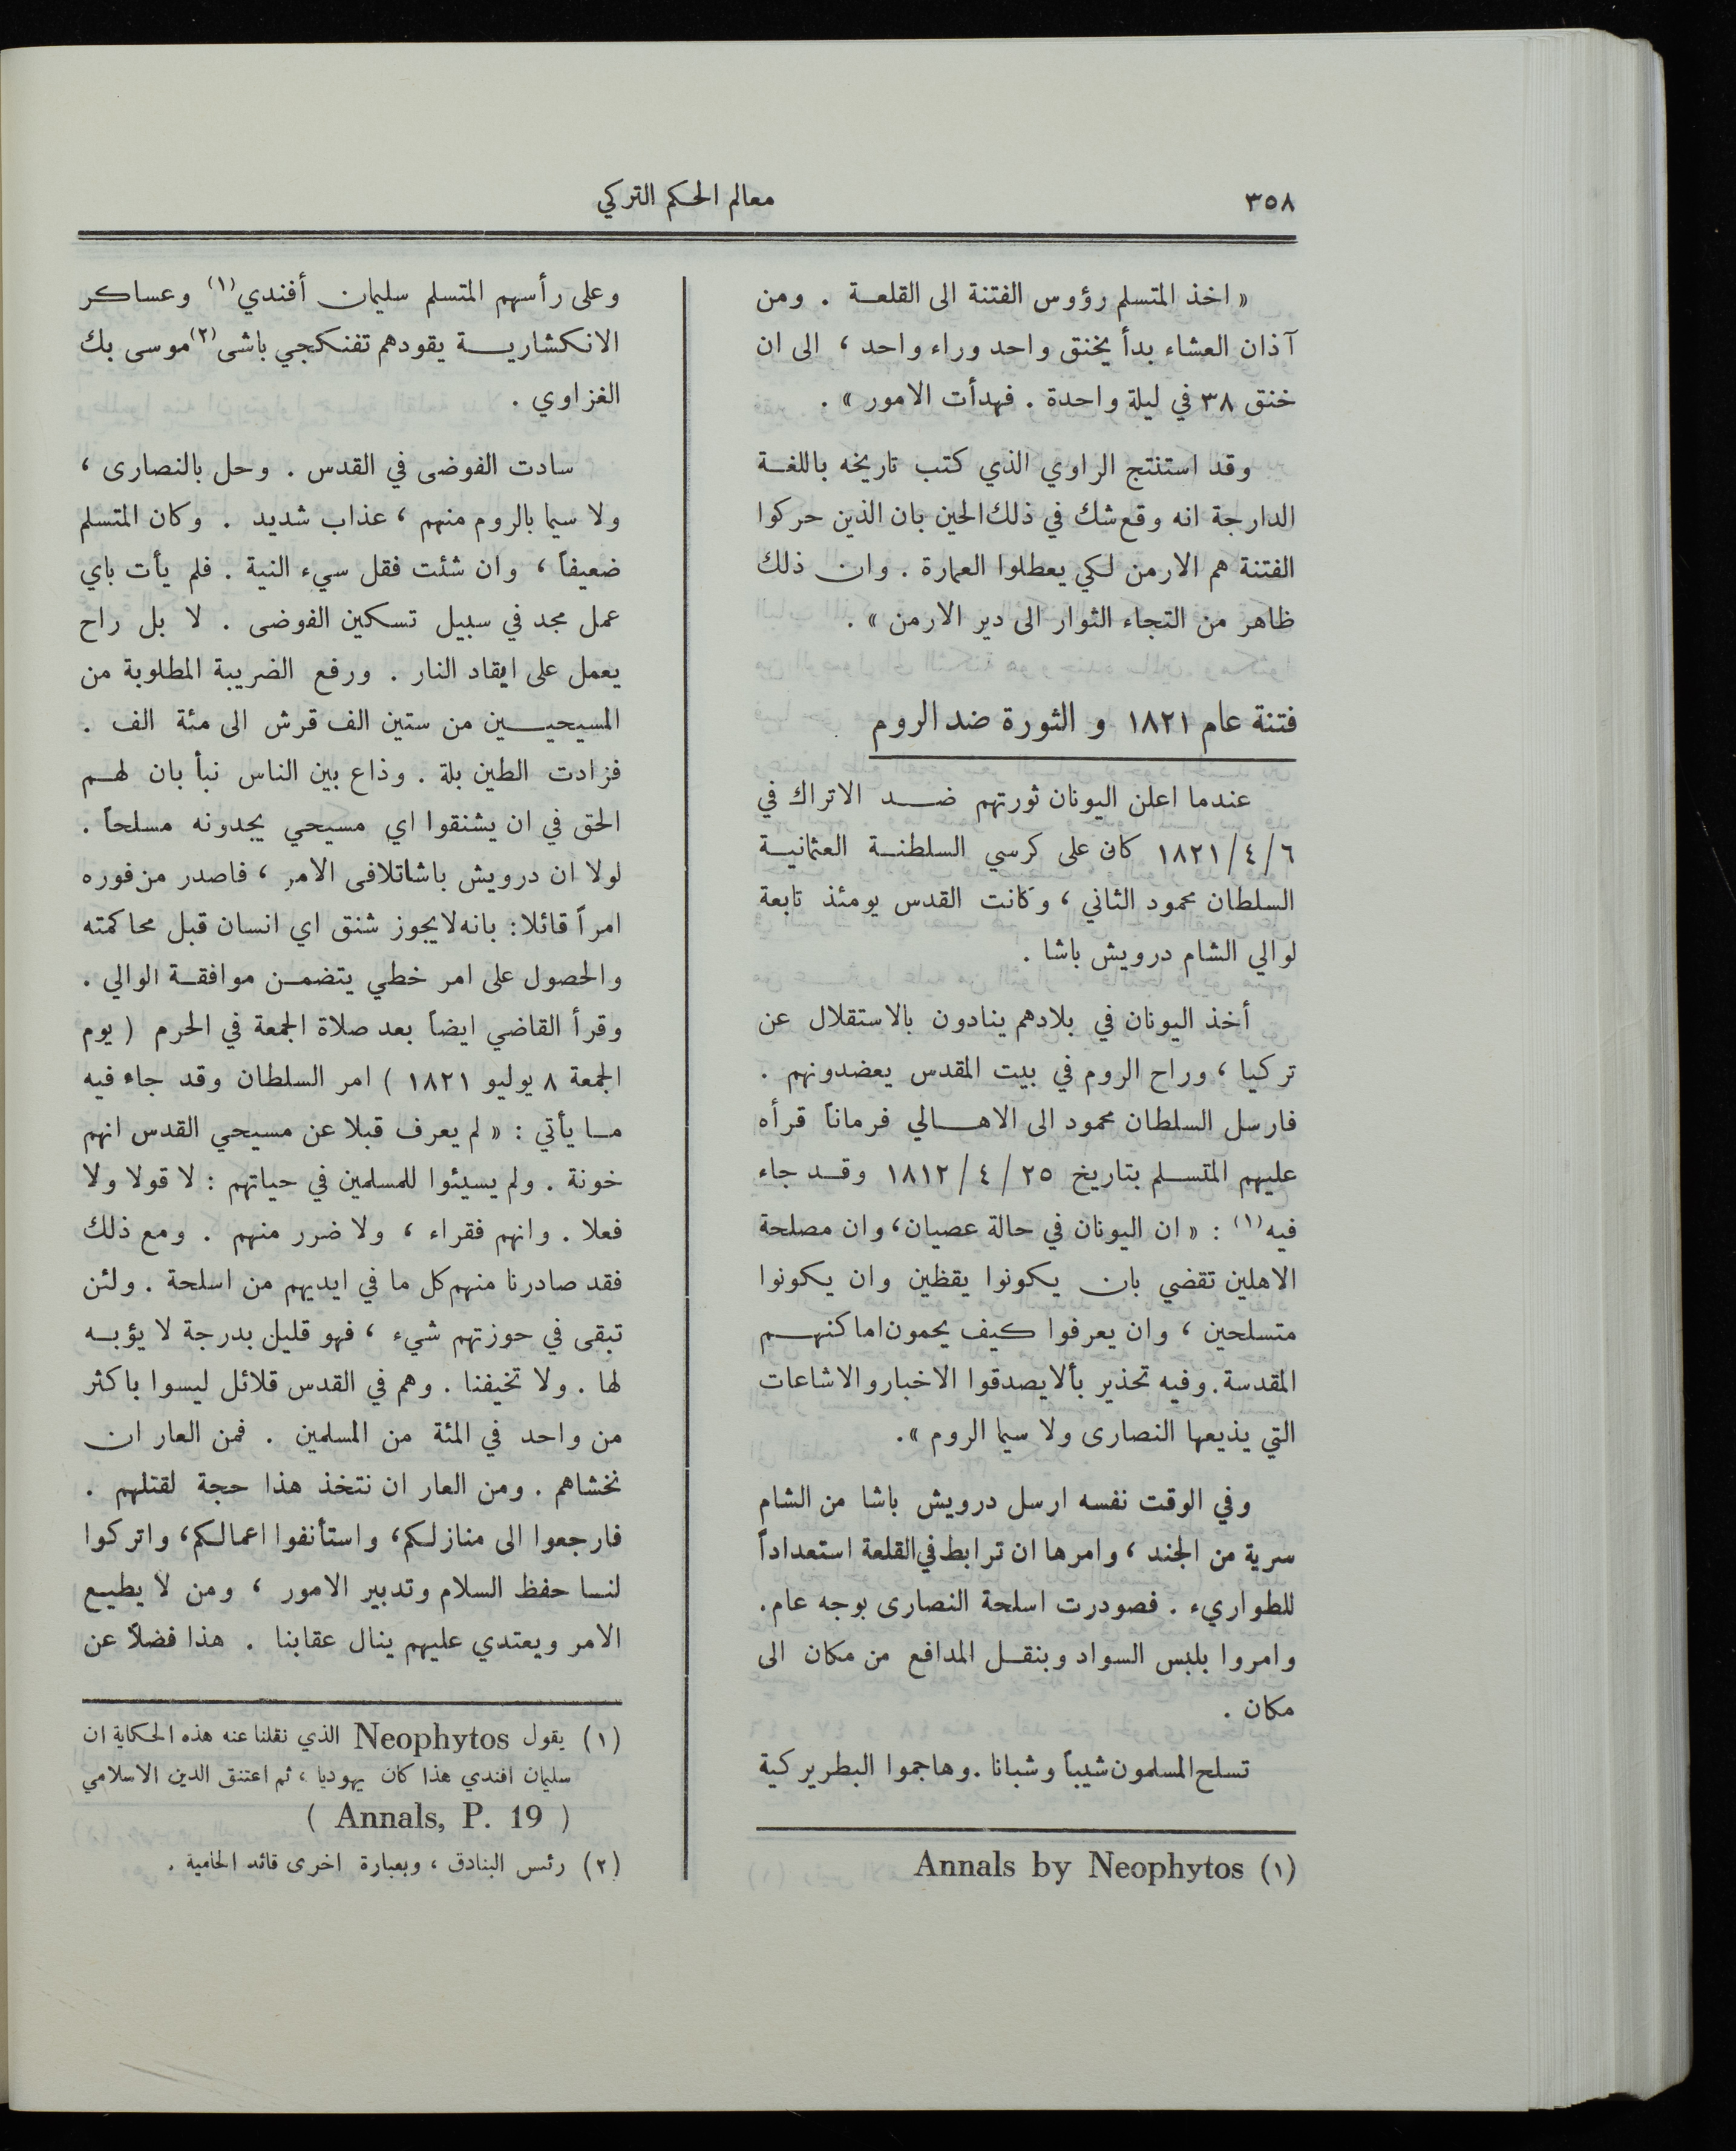 ٣٥٨
معالم الحكم التركي
« اخذ المتسلم رؤوس الفتنة الى القلعة . ومن
آذان العشاء بدأ يخنق واحد وراء واحد ، الى ان
خنق ٣٨ في ليلة واحدة . فهدأت الامور » .
وقد استنتج الراوي الذي كتب تاريخه باللغة
الدارجة انه وقع شك في ذلك الحين بان الذين حركوا
الفتنة هم الارمن لكي يعطلوا العمارة . وان ذلك
ظاهر من التجاء الثوار الى دير الارمن » .
فتنة عام ١٨٢١ و الثورة ضد الروم
عندما اعلن اليونان ثورتهم ضد الاتراك في
١٨٢١/٤/٦ كان على كرسي السلطنة العثمانية
السلطان محمود الثاني ، وكانت القدس يومئذ تابعة
لوالي الشام درويش باشا .
أخذ اليونان في بلادهم ينادون بالاستقلال عن
تركيا ، وراح الروم في بيت المقدس يعضدونهم .
فارسل السلطان محمود الى الاهالي فرماناً قرأه
عليهم المتسلم بتاريخ ٢٥ /٤ /١٨١٢ وقد جاء
فيه (١) : « ان اليونان في حالة عصيان ، وان مصلحة
الاهلين تقضي بان يكونوا يقظين وان يكونوا
متسلحين ، وان يعرفوا كيف يحمون اماكنهم
المقدسة . وفيه تحذير بألا يصدقوا الاخبار والاشاعات
التي يذيعها النصارى ولا سيما الروم » .
وفي الوقت نفسه ارسل درويش باشا من الشام
سرية من الجند ، وامرها ان ترابط في القلعة استعداداً
للطواريء . فصودرت اسلحة النصارى بوجه عام .
وامروا بلبس السواد وبنقل المدافع من مكان الى
مكان .
تسلح المسلمون شيباً وشبانا . وهاجموا البطريركية
(١) Annals by Neophytos
وعلى رأسهم المتسلم سليمان أفندي (١) وعساكر
الانكشارية يقودهم تفنكجي باشى (٢) موسى بك
الغزاوي .
سادت الفوضى في القدس . وحل بالنصارى ،
ولا سيما بالروم منهم ، عذاب شديد . وكان المتسلم
ضعيفاً ، وان شئت فقل سيء النية . فلم يأت باي
عمل مجد في سبيل تسكين الفوضى . لا بل راح
يعمل على ايقاد النار . ورفع الضريبة المطلوبة من
المسيحيين من ستين الف قرش الى مئة الف .
فزادت الطين بلة . وذاع بين الناس نبأ بان لهم
الحق في ان يشنقوا اي مسيحي يجدونه مسلحاً .
لولا ان درويش باشا تلافى الامر ، فاصدر من فوره
امراً قائلا : بانه لا يجوز شنق اي انسان قبل محاكمته
والحصول على امر خطي يتضمن موافقة الوالي .
وقرأ القاضي ايضاً بعد صلاة الجمعة في الحرم ( يوم
الجمعة ٨ يوليو ١٨٢١ ) امر السلطان وقد جاء فيه
ما يأتي : « لم يعرف قبلا عن مسيحي القدس انهم
خونة . ولم يسيئوا للمسلمين في حياتهم : لا قولا ولا
فعلا . وانهم فقراء ، ولا ضرر منهم . ومع ذلك
فقد صادرنا منهم كل ما في ايديهم من اسلحة . ولئن
تبقى في حوزتهم شيء ، فهو قليل بدرجة لا يؤبه
لها . ولا تخيفنا . وهم في القدس قلائل ليسوا باكثر
من واحد في المئة من المسلمين . فمن العار ان
نخشاهم . ومن العار ان نتخذ هذا حجة لقتلهم .
فارجعوا الى منازلكم ، واستأنفوا اعمالكم ، واتركوا
لنا حفظ السلام وتدبير الامور ، ومن لا يطيع
الامر ويعتدي عليهم ينال عقابنا . هذا فضلاً عن
(١) يقول Neophytos الذي نقلنا عنه هذه الحكاية ان
سليمان افندي هذا كان يهوديا ، ثم اعتنق الدين الاسلامي
( Annals, P. 19 )
(٢) رئس البنادق ، وبعبارة اخرى قائد الحامية .